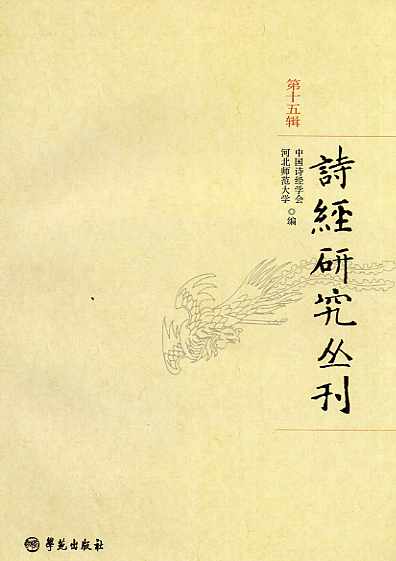 詩經研究丛刊
第十五辑
中国诗经学会
河北师范大学
编
學苑出版社